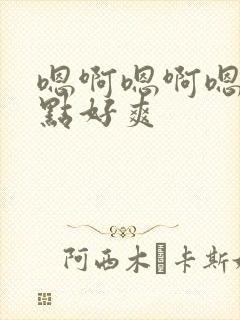 嗯啊嗯啊嗯
點好爽
阿西木�卡斯